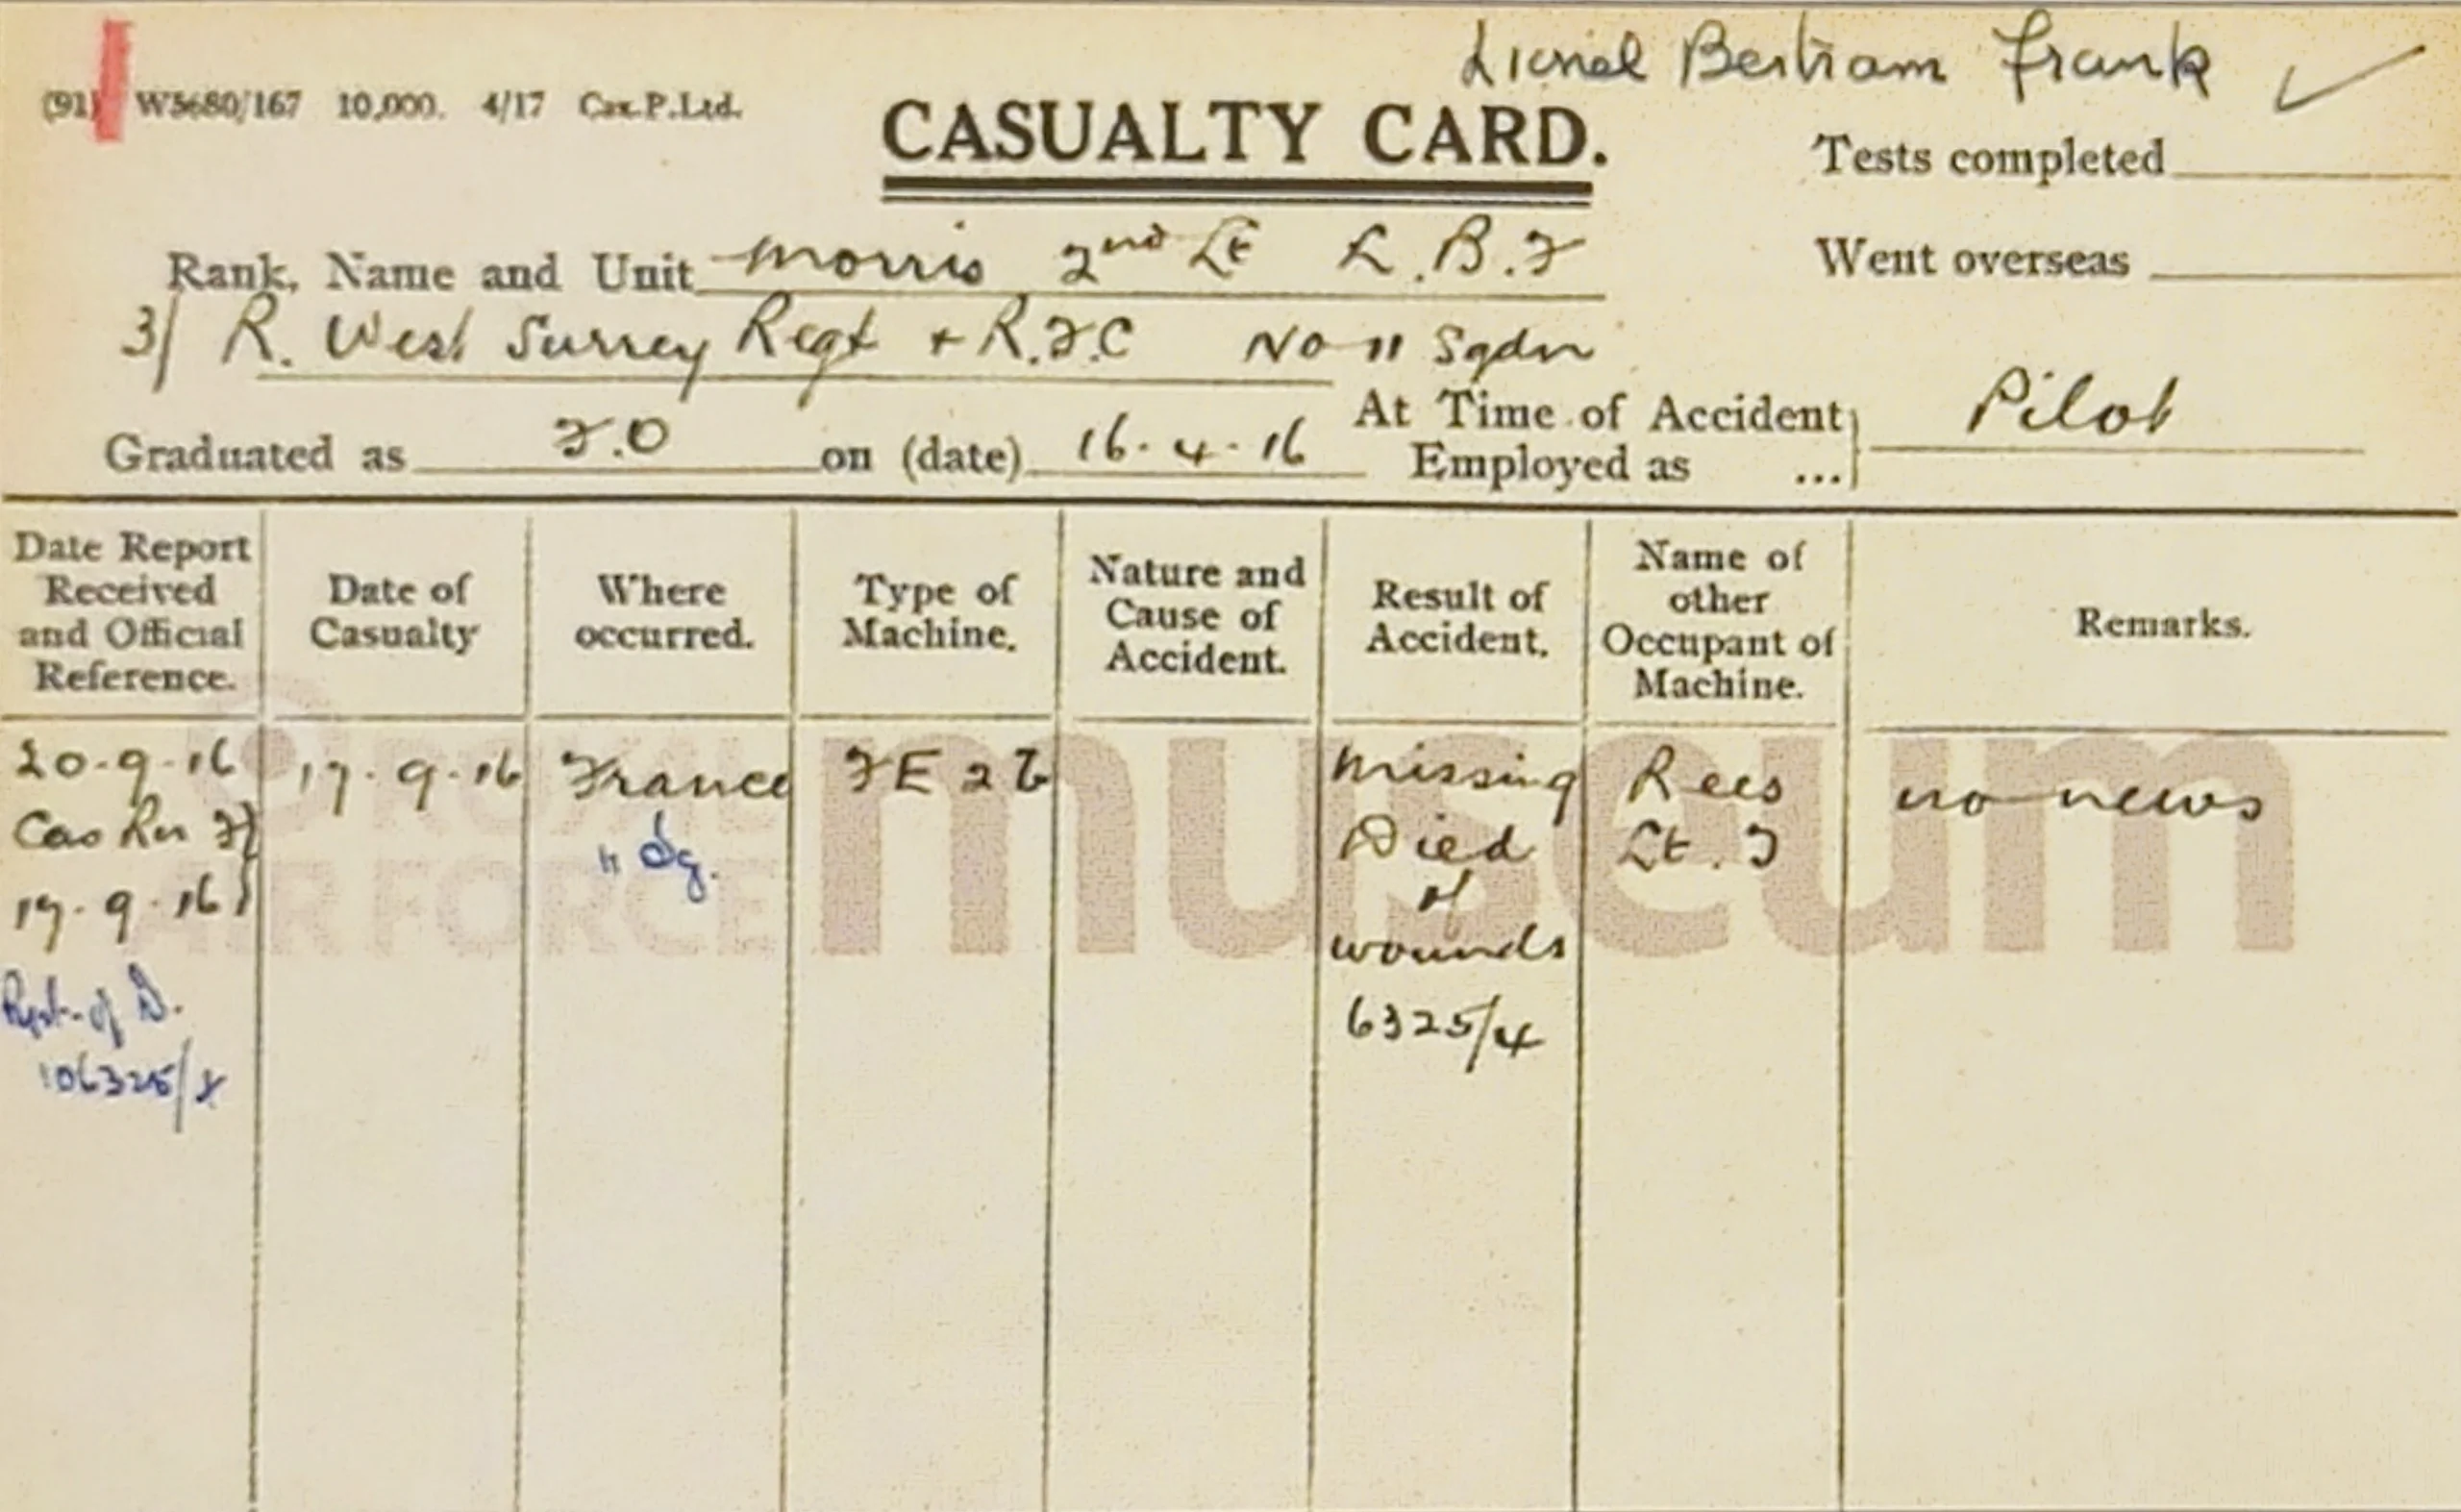 Lionel Bertram Frank
(91) W5680/167 10,000. 4/17 Cax.P.Ltd.
CASUALTY CARD.
Tests completed
Rank, Name and Unit Morris 2nd Lt L.B.F
Went overseas
3/ R. West Surrey Regt + R.F.C No 11 Sqdn
Graduated as F.O on (date) 16.4.16
At Time of Accident
Employed as ...
Pilot
Date Report
Received
and Official
Reference.
Date of
Casualty
Where
occurred.
Type of
Machine.
Nature and
Cause of
Accident.
Result of
Accident.
Name of
other
Occupant of
Machine.
Remarks.
20.9.16
Cas
17.9.16
Rpt. of D.
106325/
17.9.16
France
11 Sq.
FE 2b
Missing
Died
of
wounds
6325/4
Rees
Lt. T
no news
ROYAL
AIR FORCE
museum